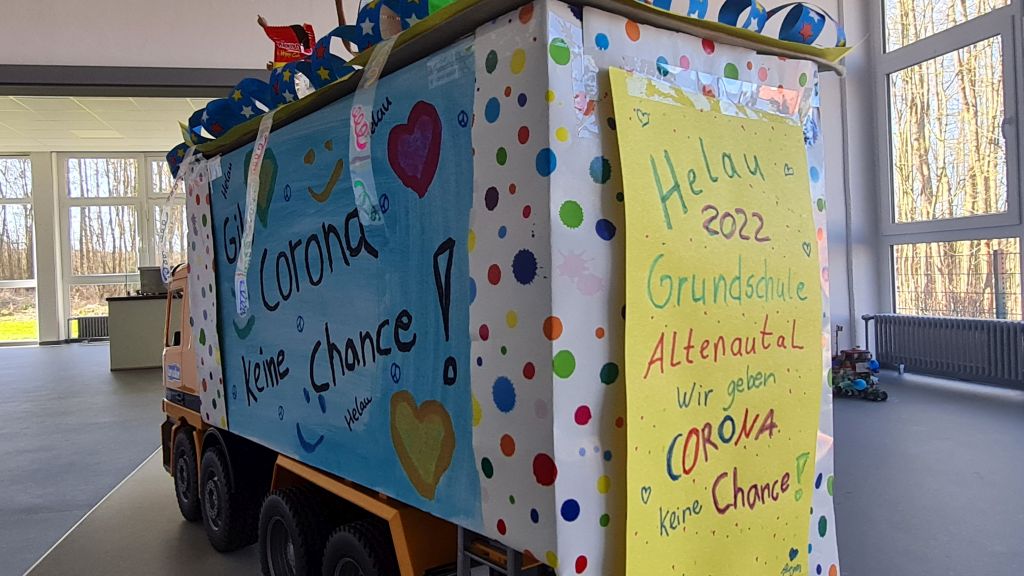 Helau
Helau
Gib
Corona
keine Chance!
Helau
Helau
2022
Grundschule
Altenautal
Wir geben
CORONA
keine Chance!